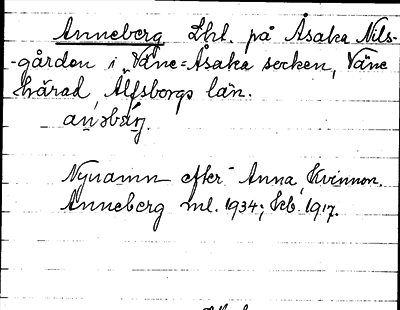 Anneberg Lht. på Åsaka Nils-
-gården i Väne-Åsaka socken, Väne
härad, Älfsborgs län.
Nynamn efter Anna, kvinnon.
Anneberg ml. 1934; Kb. 1917.